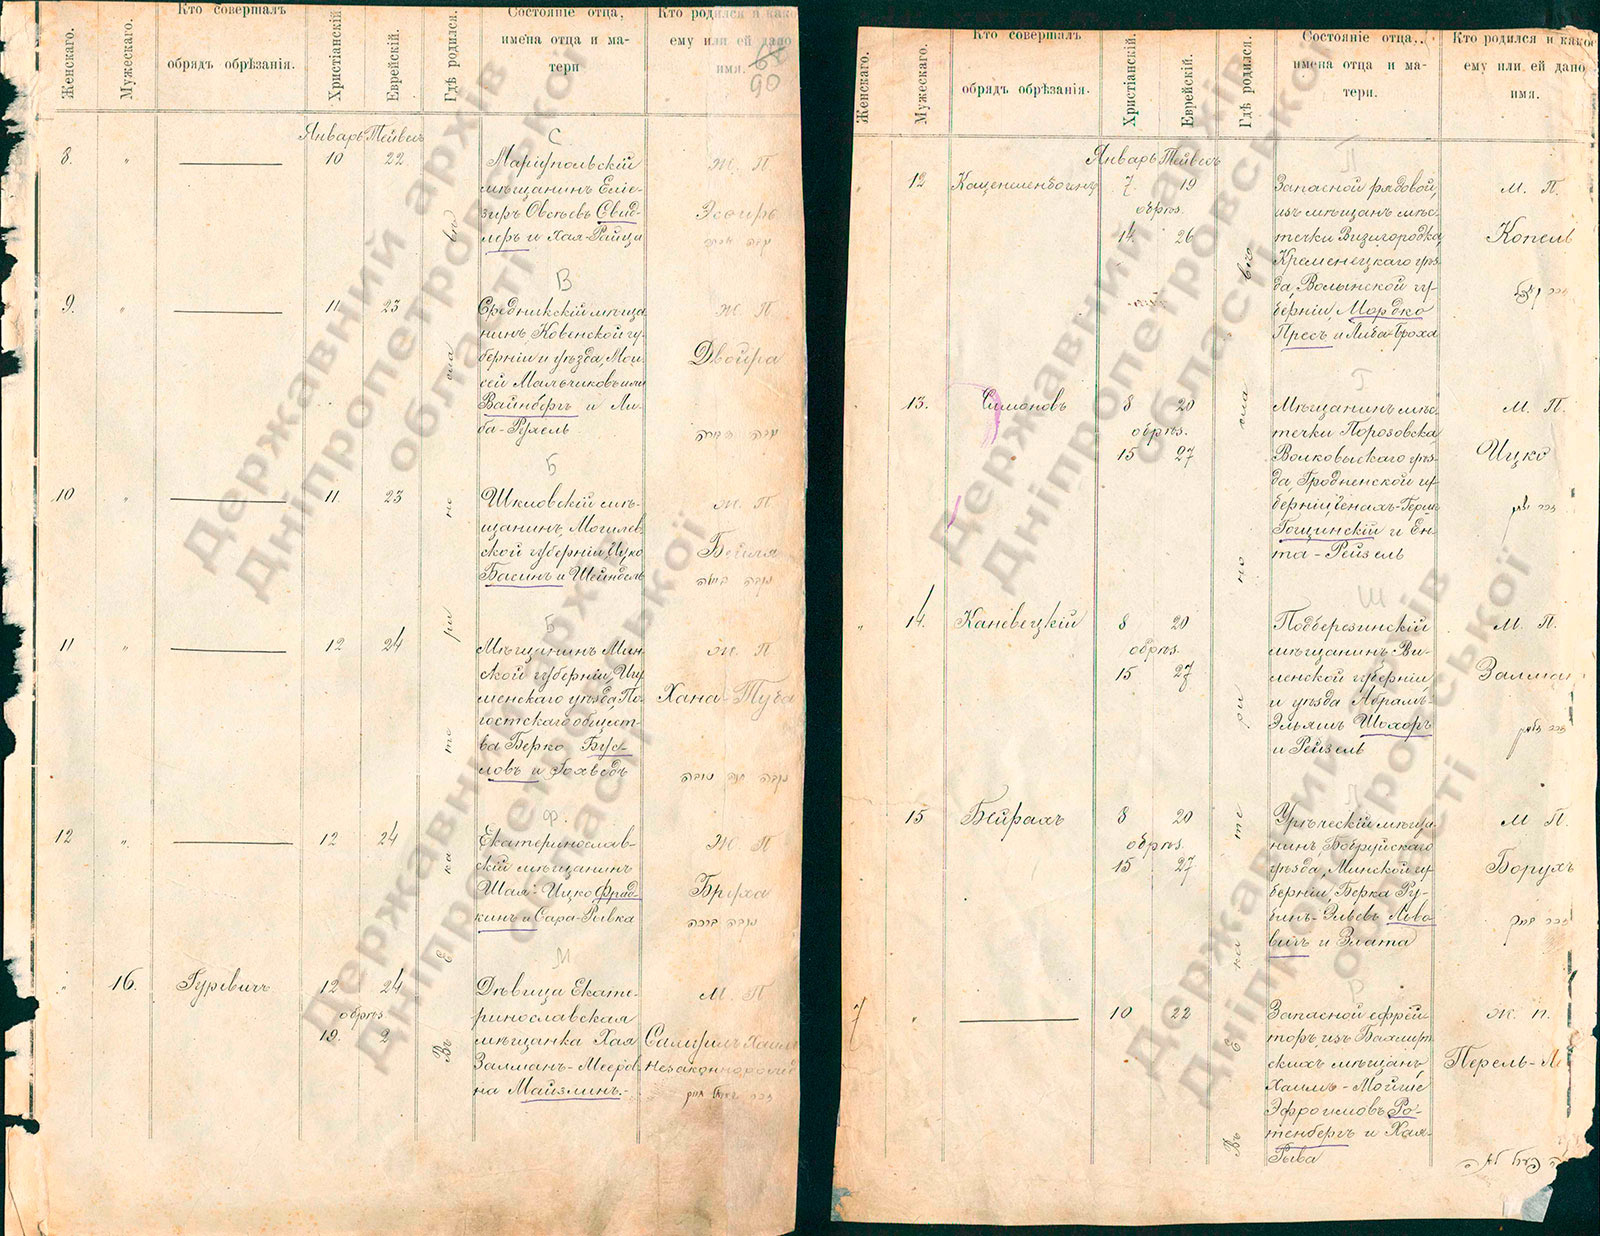 Женскаго.
Мужескаго.
Кто совершалъ
обрядъ обрѣзанія.
Христіанскій.
Еврейскій.
Гдѣ родился.
Состояніе отца,
имена отца и ма-
тери
Кто родился и како
ему или ей дано
имя.
90
Январь Тейвесъ
8. " 10 22
С
Маріупольскій
мѣщанинъ Елі-
езиръ Овсѣевъ Свид-
леръ и Хая-Райца
Ж. П.
Эсѳирь
9. " 11 23
В
Средникскій мѣща
нинъ Ковенской гу-
берніи и уѣзда, Мои-
сей Мальчиковъ или
Вайнбергъ и Ли-
ба-Рухель
Ж П
Двойра
נקבה דבורה
10 " 11 23
Б
Шкловскій мѣ-
щанинъ, Могилев
ской губерніи, Ицко
Басинъ и Шейндель
Ж П
Бейля
נקבה ביילה
11 " 12 24
Б
Мѣщанинъ Мин-
ской губерніи, Игу
менскаго уѣзда, По-
гостскаго общест-
ва Берко Бус-
ловъ и Гохведъ
Ж. П
Хана-Туба
נקבה חנה טובה
12 " 12 24
Ф.
Екатеринослав-
скій мѣщанинъ
Шая-Ицко Фрад-
кинъ и Сара-Рывка
Ж П
Бруха
נקבה ברכה
" 16. Гуревичъ 12 24
обрѣз
19. 2
М
Дѣвица Екате-
ринославская
мѣщанка Хая
Залманъ-Мееров-
на Майзлинъ.-
М П
Самуилъ Хаимъ
незаконнорожд
Въ Екатеринославѣ
Женскаго.
Мужескаго.
Кто совершалъ
обрядъ обрѣзанія.
Христіанскій.
Еврейскій.
Гдѣ родился.
Состояніе отца,
имена отца и ма-
тери.
Кто родился и какое
ему или ей дано
имя.
Январь Тейвесъ
12 Каценеленбогенъ 7. 19
обрѣз.
14. 26
П
Запасной рядовой,
изъ мѣщанъ мѣс-
течки Визигородка,
Кременецкаго уѣз
да, Волынской гу-
берніи Мордко
Пресъ и Либа-Броха
М. П.
Копель
13. Симоновъ 8 20
обрѣз.
15 27
Г
Мѣщанинъ мѣс-
течки Порозовска
Волковыскаго уѣз-
да Гродненской гу-
берніи,
Гощинскій и Ен-
та-Рейзель
М. П.
Ицко
זכר יצחק
" 14. Каневецкій 8 20
обрѣз.
15 27
Ш
Подберезинскій
мѣщанинъ Ви-
ленской губерніи
и уѣзда Абрамъ-
Эльяшъ Шохоръ
и Рейзель
М. П.
Залман
זכר זלמן
15 Бейрахъ 8 20
обрѣз.
15 27
Л
Урѣческій мѣща-
нинъ, Бобруйскаго
уѣзда, Минской гу
берніи, Берка Ру-
бинъ-Эльевъ Лево-
вичъ и Злата
М П.
Борухъ
זכר ברוך
7 " 10 22
Р
Запасной ефрей
торъ, изъ Бахмут
скихъ мѣщанъ,
Хаимъ-Мойше
Эфроимовъ Ро-
тенбергъ и Хая-
Рыва
Ж. П.
Перель-Л
Въ Екатеринославѣ
Державний архів
Дніпропетровської
області
Державний архів
Дніпропетровської
області
Державний архів
Дніпропетровської
області
Державний архів
Дніпропетровської
області